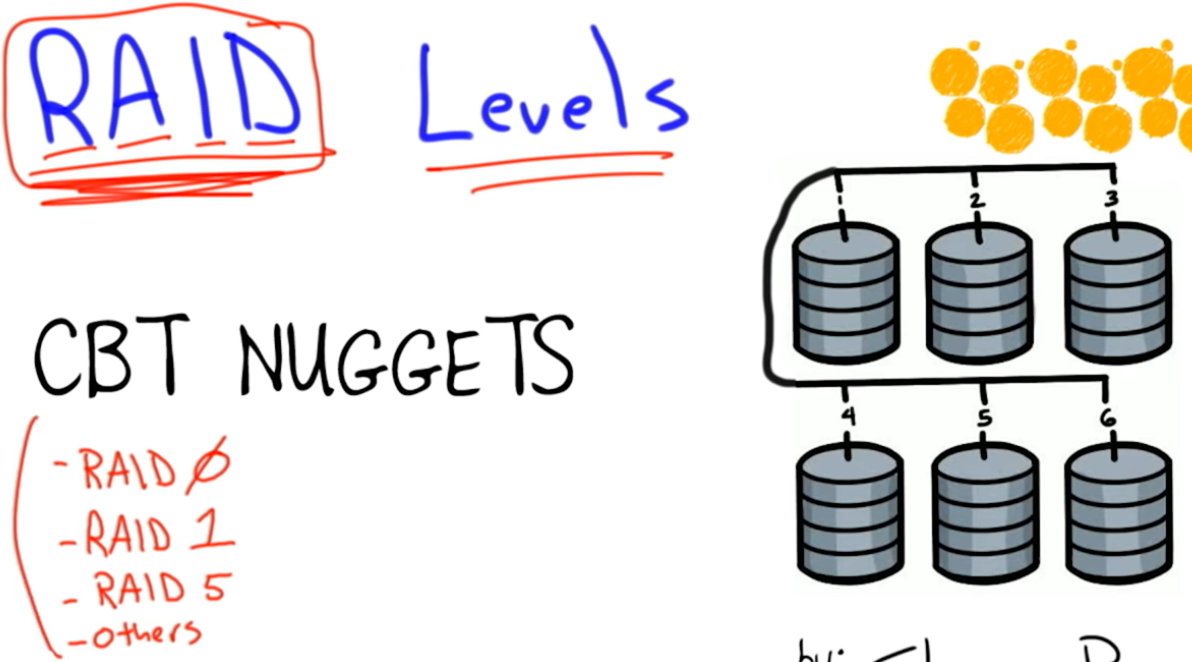 RAID Levels
CBT NUGGETS
- RAID 0
- RAID 1
- RAID 5
- Others
1 2 3
4 5 6
by: